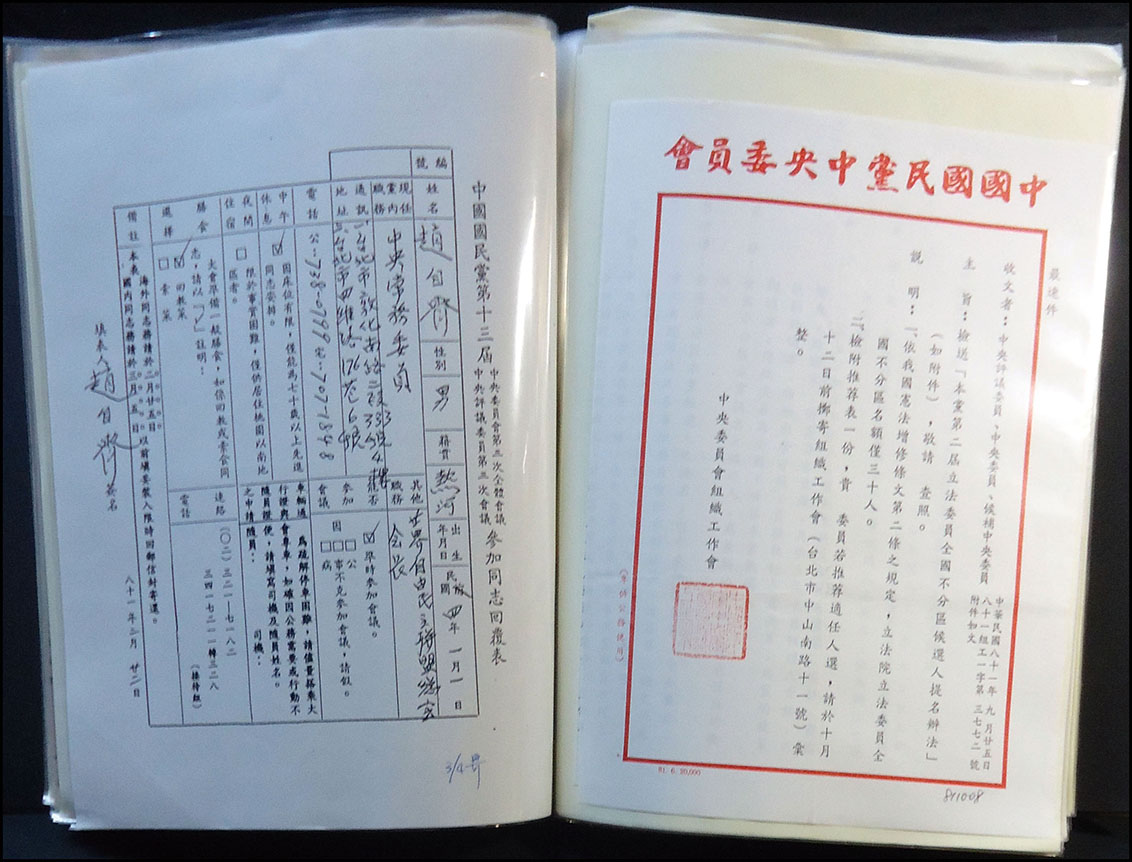 中國國民黨第十三屆中央委員會第三次全體會議
中央評議委員第三次會議 參加同志回覆表
編號
姓名
趙自齊
性別
男
籍貫
熱河
出生年月日
民國四年一月一日
現任黨內職務
中央常務委員
其他職務
世界自由民主聯盟總會
會長
通訊地址
電話
公:738-0799 宅:707-1848
能否參加會議
☑準時參加會議。
因 □公 □事 □病 不克參加會議,請假。
中午休息
☑因床位有限,僅能為七十歲以上先進
同志安排。
夜間住宿
□限於事實困難,僅供居住桃園以南地
區者。
車輛通行證與隨員證
為疏解停車困難,請儘量搭乘大
會專車,如確因公務需要或行動不
便,請填寫司機及隨員姓名。
之申請
隨員:
司機:
膳食選擇
大會準備一般膳食,如係回教或素食同
志,請以「✓」註明:
☑回教菜
□素菜
連絡電話
(〇二)三二一—七一八二
三四一七二一一轉三二八
(接待組)
備註
本表 海外同志務請於二月廿五日
國內同志務請於三月五日 以前填妥裝入限時回郵信封寄還。
填表人 趙自齊 簽名
八十一年二月廿二日
中國國民黨中央委員會
最速件
收文者:中央評議委員、中央委員、候補中央委員
中華民國八十一年九月廿五日
八十一組工一字第三七七二號
附件如文
主 旨:檢送「本黨第二屆立法委員全國不分區候選人提名辦法」
(如附件),敬請 查照。
說 明:一、依我國憲法增修條文第二條之規定,立法院立法委員全
國不分區名額僅三十人。
二、檢附推荐表一份,貴 委員若推荐適任人選,請於十月
十二日前擲寄組織工作會(台北市中山南路十一號)彙
整。
中央委員會組織工作會
(本供公務使用)
81. 6. 20,000
811008